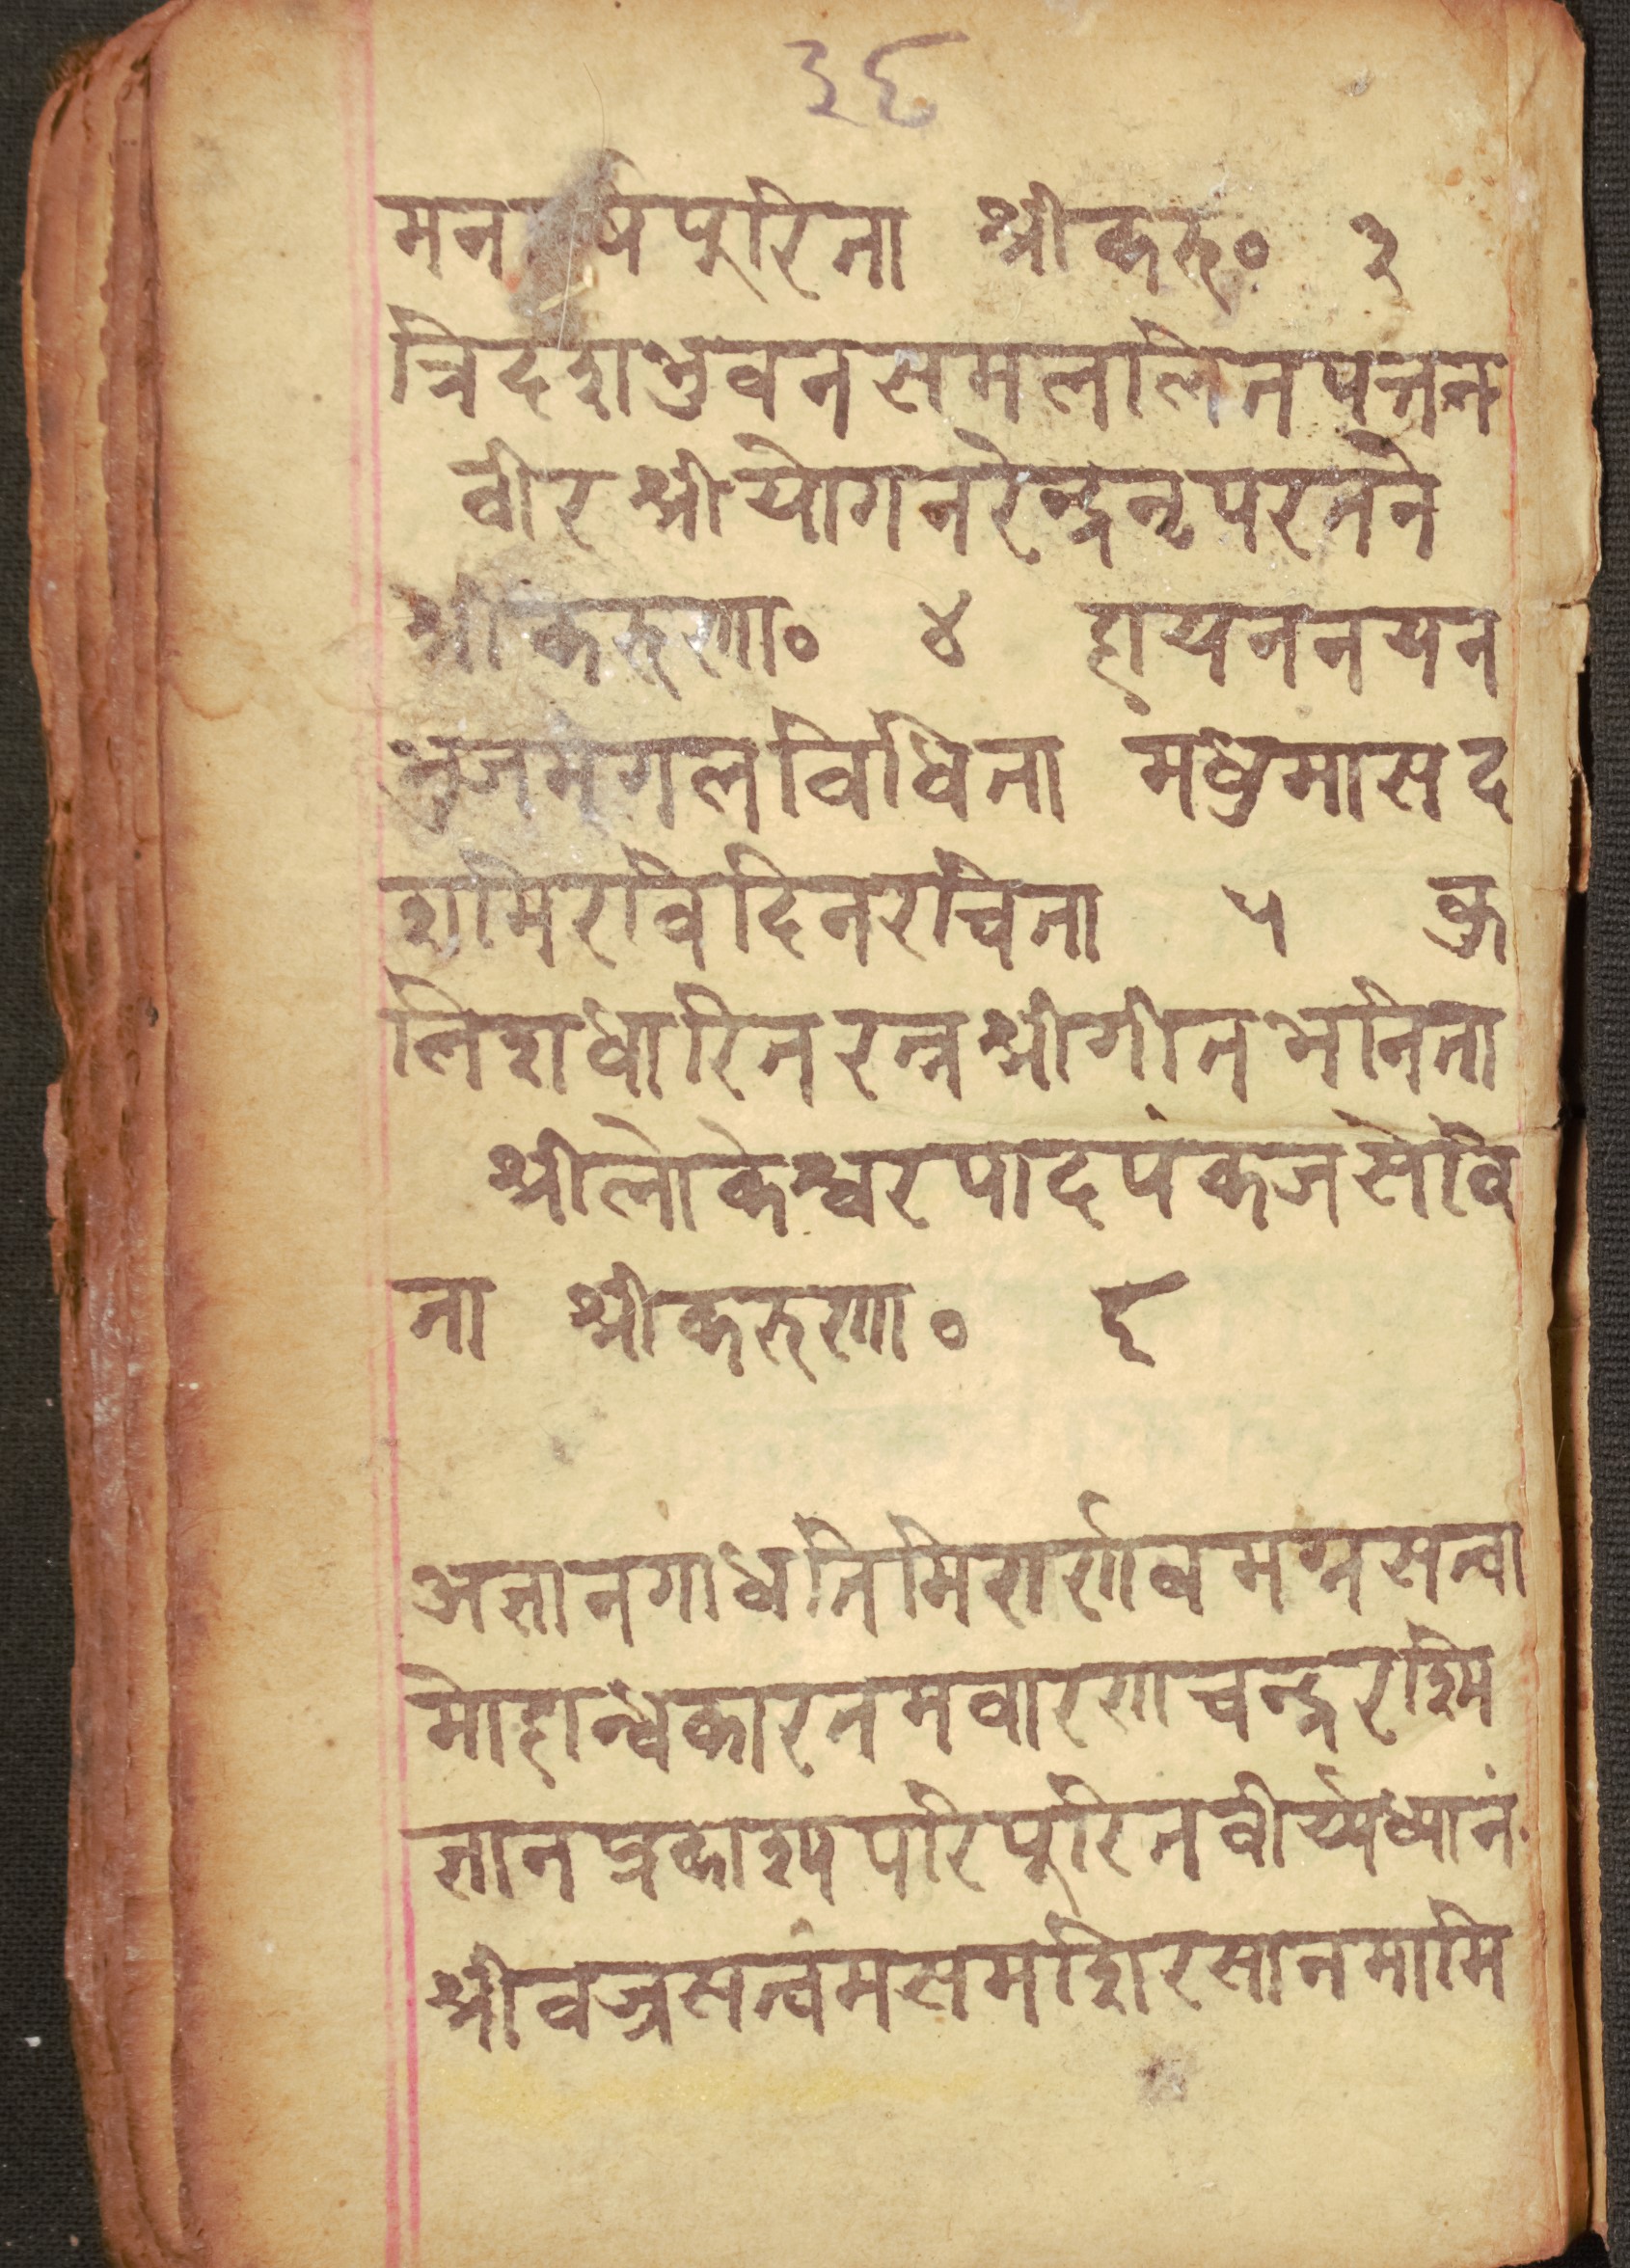 ३६
पुरिता श्रीकरु० ३
त्रिदशभुवनसमललितपत्तन
वीरश्रीयोगनरेन्द्रनृपरतने
श्रीकरुणा० ४ हायननयन
भुजमंगलविधिता मंधुमासद
शमिरविदिनरचिता ५ कु
लिशधारितरत्नश्रीगीतभनिता
श्रीलोकेश्वरपादपंकजसेवि
ता श्रीकरुणा० ६
अज्ञानगाधतिमिरार्णवमग्नसत्वा
मोहान्धकारतमवारणचन्द्ररश्मि
ज्ञानप्रकाश्यपरिपुरितवीर्य्यध्यानं
श्रीवज्रसत्वंमसमंशिरसानमामि